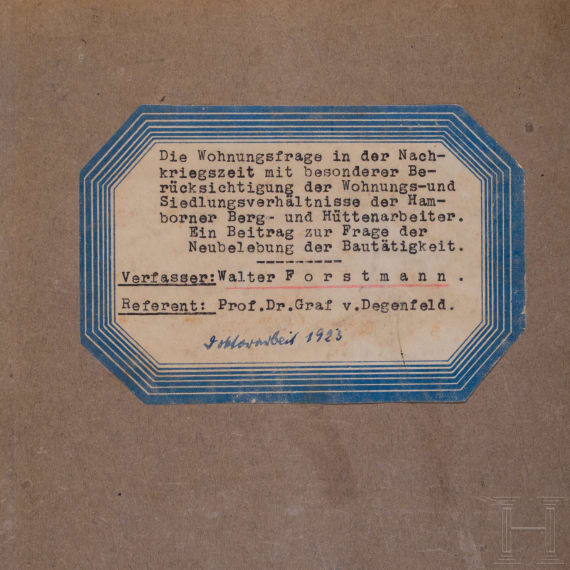 Die Wohnungsfrage in der Nach-
kriegszeit mit besonderer Be-
rücksichtigung der Wohnungs-und
Siedlungsverhältnisse der Ham-
borner Berg- und Hüttenarbeiter.
Ein Beitrag zur Frage der
Neubelebung der Bautätigkeit.
Verfasser: Walter Forstmann.
Referent: Prof.Dr.Graf v.Degenfeld.
Doktorarbeit 1923
H